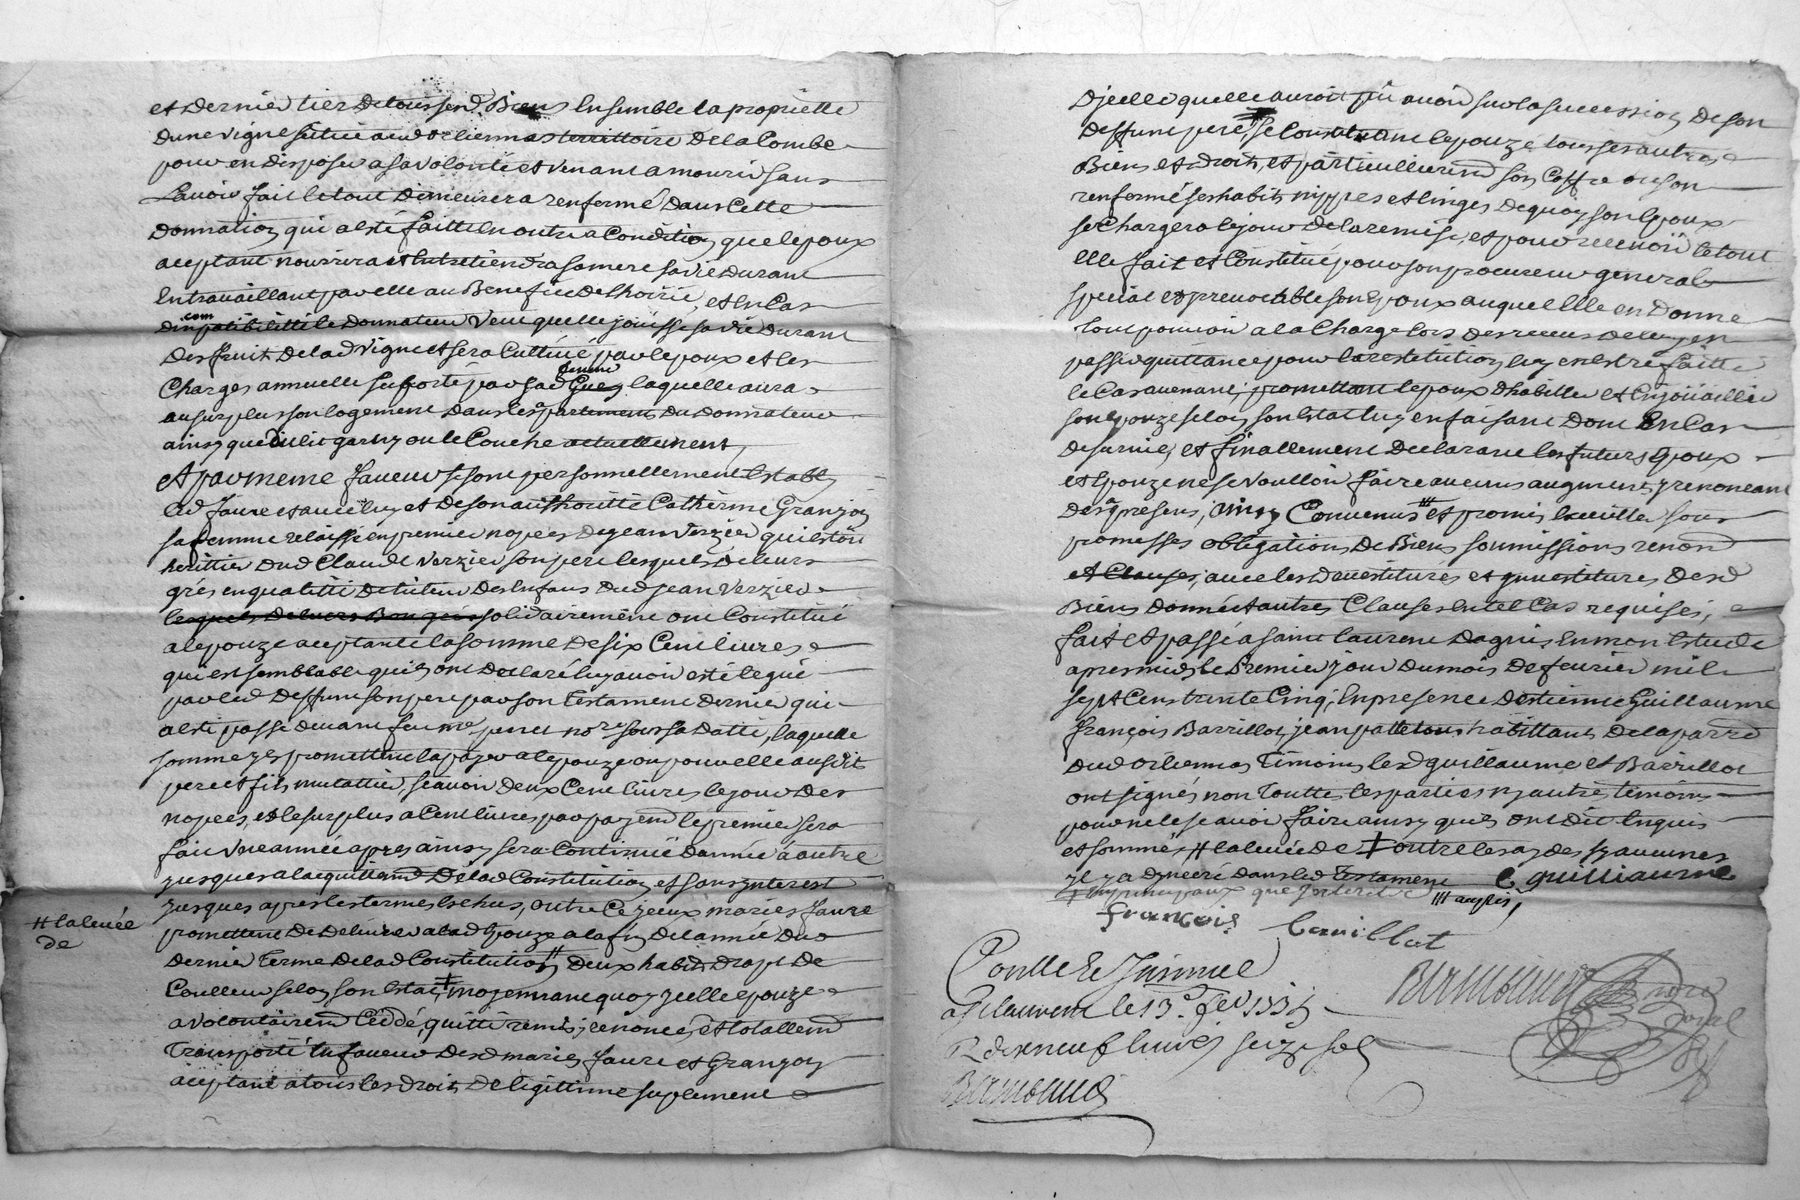 et dernier tier de tous sesd. Biens Ensemble la proprietté
dune vigne scituée aud orliennas territtoire De la Combe
pour en disposer a sa volonté et venant a mourir sans
L'avoir fait le tout Demeurera renfermé Dans Cette
Donnation qui a esté faitte En outre a Condition que lepoux
aceptant nourrira et Entretiendra sa mere sa vie Durant
En travaillant par elle au Benefice de L'hoirie, et En Cas
dincompatibilitté le Donnateur veut quelle joüisse sa vie Durant
Des fruit De lad vigne et sera Cultivé par lepoux et les
Charges annuelle suporté par sad femme laquelle aura
au surplus son logement Dans les apartements Du Donnateur
ainsy que du lit garny ou le Couche actuellement,
Et par meme faveur se sont personnellement Establ
led faure et avec luy et De son authoritté Catherine Granjon
sa femme relaissé en premier nopces De jean Verzier qui estoit
herittier dud Claude Verzier son pere lesquels De leurs
grés en qualitté De tuteur Des Enfans dud jean Verzier
lesquels De leurs Bon gré solidairement ont Constitué
a lepouze aceptante la somme De six Cent livres
qui est semblable quils ont Declaré luy avoir esté legué
par led Deffunt son pere par son Testament Dernier qui
a esté passé devant feu me no.re sous sa Datte, laquelle
somme ils promettent la payer a lepouze ou pour elle ausdits
pere et fils mutattier, scavoir deux Cent livres le jour Des
nopces, et le surplus a Cent livres par payem.t le premier sera
fait une année apres ainsy sera Continué D'année a autre
jusques a lacquittem.t De lad Constitution et sans ynterest
jusques apres les termes Echus, outre Ce jceux mariés faure
promettent De Delivrer a lad Epouze a la fin De lannée Du
Dernier Terme De lad Constitution # deux habits Drapt De
Coulleur selon son Estat, ‡ moyennant quoy ycelle epouze
a volontairem.t Céddé, quitté remis, renoncé, et totallem.t
Transporté En faveur Desd mariés faure et Granjon
aceptant a tous les droits De legittime suplement
# la levée
de
Djcelle quelle auroit pû avoir sur la succession De son
Deffunt pere, se Constituant lepouze tous ses autres
Biens et droits, et particullierem.t son Coffre ou son
renfermé ses habits nippes et linges De quoy son Epoux
se Chargera le jour De la remise, et pour recevoir le tout
Elle fait et Constitué pour son procureur general
special et jrrevocable son Epoux auquel Elle en Donne
tout pouvoir a la Charge lors Des receus De luy en
passer quittance pour la restitution luy en Estre faitte
le Cas avenant, promettant lepoux D'habiller et Enjoüailler
son Epouze selon son Estat luy en faisant Dont En Cas
De survie, et finallement Declarant les futurs Epoux
et Epouze ne se voulloir faire aucuns augment y renonceant
Des a presens, ainsy Convenus ||| et promis Executter sous
promesses obligations De Biens soumissions renon.d
et Clauses, avec les Devestitures et ynvestitures Desd
Biens Donnés et autres Clauses En tel Cas requises,
fait et passé a saint laurent Dagnis En mon Estude
apres midy le Premier jour du mois De fevrier mil
sept Cens trente Cinq, En presence D'estienne Guillaume
françois Barrillot, jean pattet tous habittant De la par.se
Dud orliennas Témoins lesd guillaume et Barrillot
ont signés non toutte les parties ny autre témoins
pour ne le scavoir faire ainsy quils ont Dit Enquis
et sommés # la levée de ‡ outre
jl y a dans led Testament e guilliaume
||| auxples,
francois bariillot
Conttlé &
a St laurent le 13.e fev 1735
R dixneuf livres seize sol